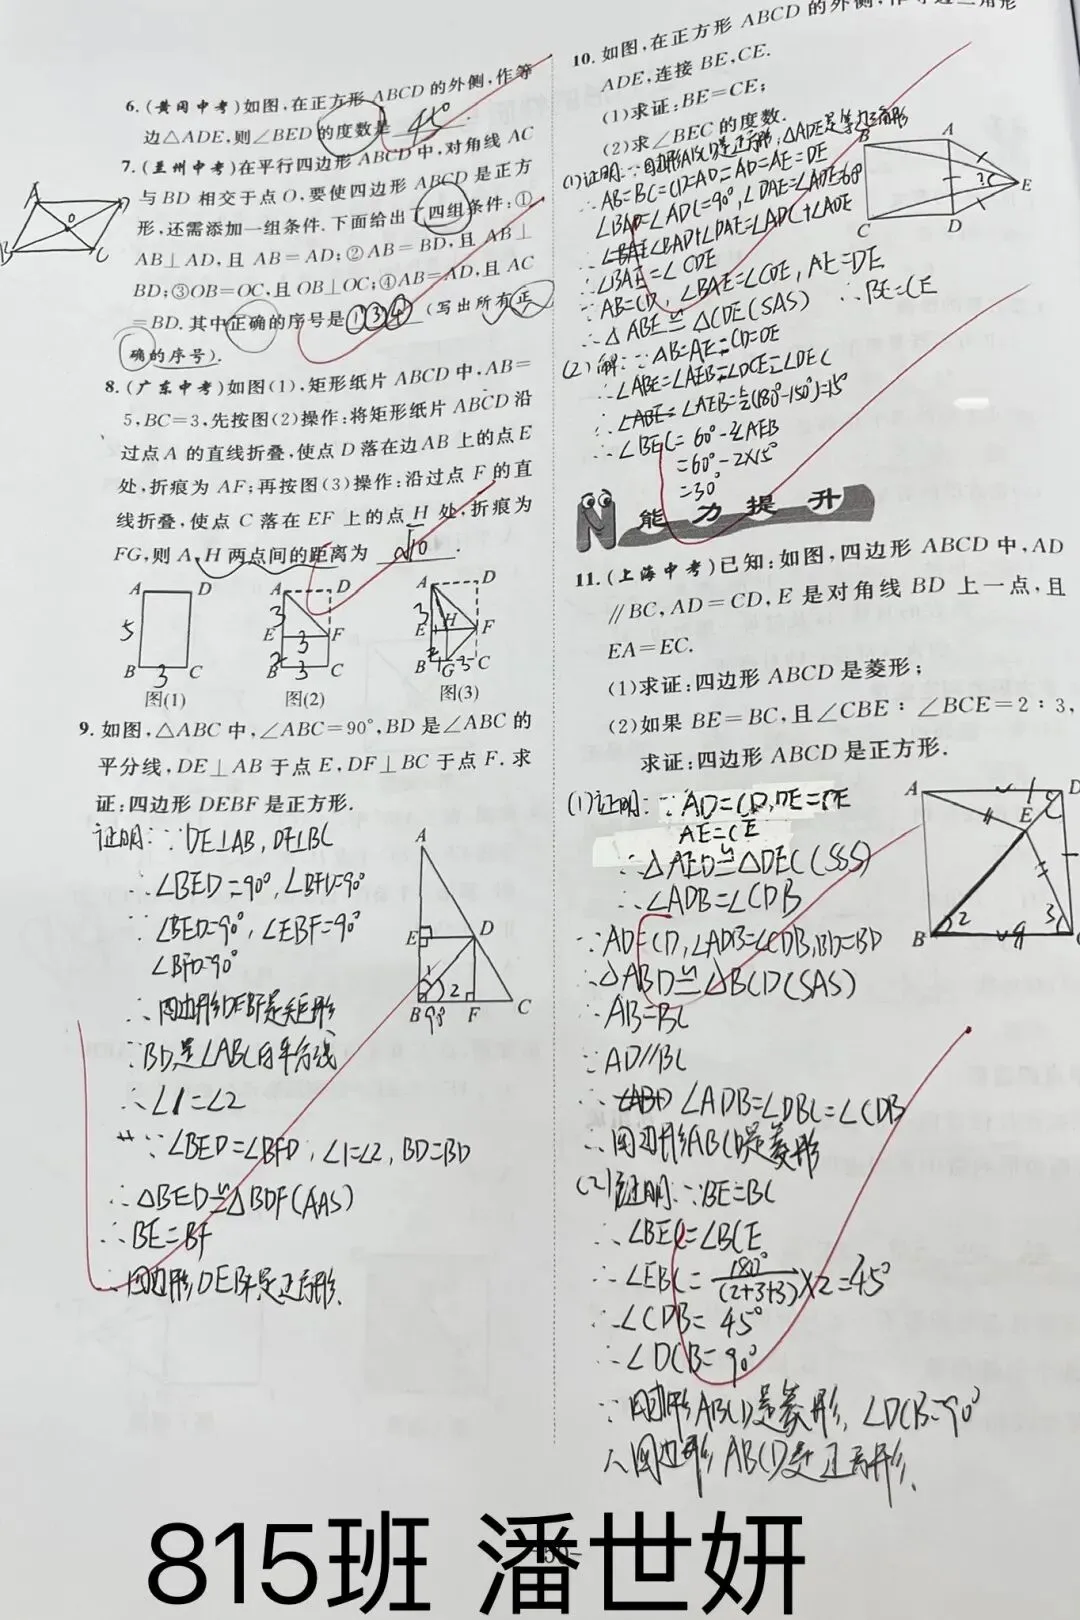 6.(黄冈中考)如图,在正方形 ABCD 的外侧,作等
边△ADE,则∠BED 的度数是 45° .
7.(兰州中考)在平行四边形 ABCD 中,对角线 AC
与 BD 相交于点 O,要使四边形 ABCD 是正方
形,还需添加一组条件.下面给出了四组条件:①
AB⊥AD,且 AB=AD;②AB=BD,且 AB⊥
BD;③OB=OC,且 OB⊥OC;④AB=AD,且 AC
=BD.其中正确的序号是 ①③④ (写出所有正
确的序号).
A
D
O
B
C
8.(广东中考)如图(1),矩形纸片 ABCD 中,AB=
5,BC=3,先按图(2)操作:将矩形纸片 ABCD 沿
过点 A 的直线折叠,使点 D 落在边 AB 上的点 E
处,折痕为 AF;再按图(3)操作:沿过点 F 的直
线折叠,使点 C 落在 EF 上的点 H 处,折痕为
FG,则 A,H 两点间的距离为 √10 .
A D A D A D
5 3 3 H
E 3 F E F
B 3 C B C B G 3 C
图(1) 图(2) 图(3)
9.如图,△ABC 中,∠ABC=90°,BD 是∠ABC 的
平分线,DE⊥AB 于点 E,DF⊥BC 于点 F.求
证:四边形 DEBF 是正方形.
证明:∵DE⊥AB,DF⊥BC
∴∠BED=90°,∠BFD=90°
∵∠BED=90°,∠EBF=90°
∠BFD=90°
∴四边形DEBF是矩形
∵BD是∠ABC的平分线
∴∠1=∠2
∵∠BED=∠BFD,∠1=∠2,BD=BD
∴△BED≌△BDF(AAS)
∴BE=BF
∴四边形DEBF是正方形.
A
E D
1 2
B F C
10.如图,在正方形 ABCD 的外侧,作等边三角形
ADE,连接 BE,CE.
(1)求证:BE=CE;
(2)求∠BEC 的度数.
(1)证明:∵四边形ABCD是正方形,△ADE是等边三角形
∴AB=BC=CD=AD=AE=DE
∠BAD=∠ADC=90°,∠DAE=∠ADE=60°
∴∠BAD+∠DAE=∠ADC+∠ADE
∴∠BAE=∠CDE
∵AB=CD,∠BAE=∠CDE,AE=DE
∴△ABE≌△CDE(SAS) ∴BE=CE
(2)解:∵AB=AE=CD=DE
∴∠ABE=∠AEB=∠DCE=∠DEC
∴∠ABE=∠AEB=½(180°-150°)=15°
∴∠BEC=60°-2∠AEB
=60°-2×15°
=30°
B A
E
C D
能力提升
11.(上海中考)已知:如图,四边形 ABCD 中,AD
∥BC,AD=CD,E 是对角线 BD 上一点,且
EA=EC.
(1)求证:四边形 ABCD 是菱形;
(2)如果 BE=BC,且∠CBE:∠BCE=2:3,
求证:四边形 ABCD 是正方形.
(1)证明:∵AD=CD,DE=DE
AE=CE
∴△AED≌△DEC(SSS)
∴∠ADB=∠CDB
∵AD=CD,∠ADB=∠CDB,BD=BD
∴△ABD≌△BCD(SAS)
∴AB=BC
∵AD//BC
∴∠ADB=∠DBC=∠CDB
∴四边形ABCD是菱形
(2)证明:∵BE=BC
∴∠BEC=∠BCE
∴∠EBC=180°/(2+3+3)×2=45°
∴∠CDB=45°
∴∠DCB=90°
∵四边形ABCD是菱形,∠DCB=90°
∴四边形ABCD是正方形.
A D
E
B 2 3
815班 潘世妍